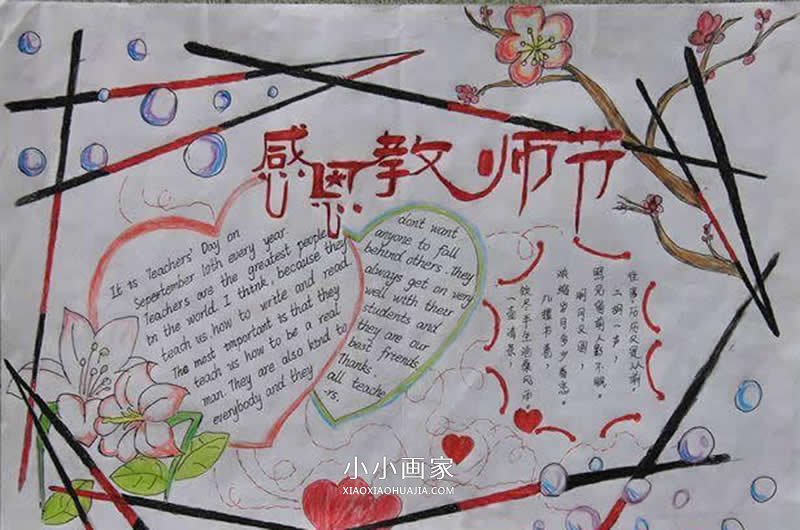 感恩教师节
It is Teachers' Day on
Seperember 10th every year.
Teachers are the greatest people
in the world. I think, because they
teach us how to write and read.
The most important is that they
teach us how to be a real
man. They are also kind to
everybody and they
don't want
anyone to fall
behind others. They
always get on very
well with their
students and
they are our
best friends.
Thanks
all teache
-rs.
二胡一声，
明月又圆，
浓缩岁月多少眷恋。
一壶清茶，
小小画家
XIAOXIAOHUAJIA.COM